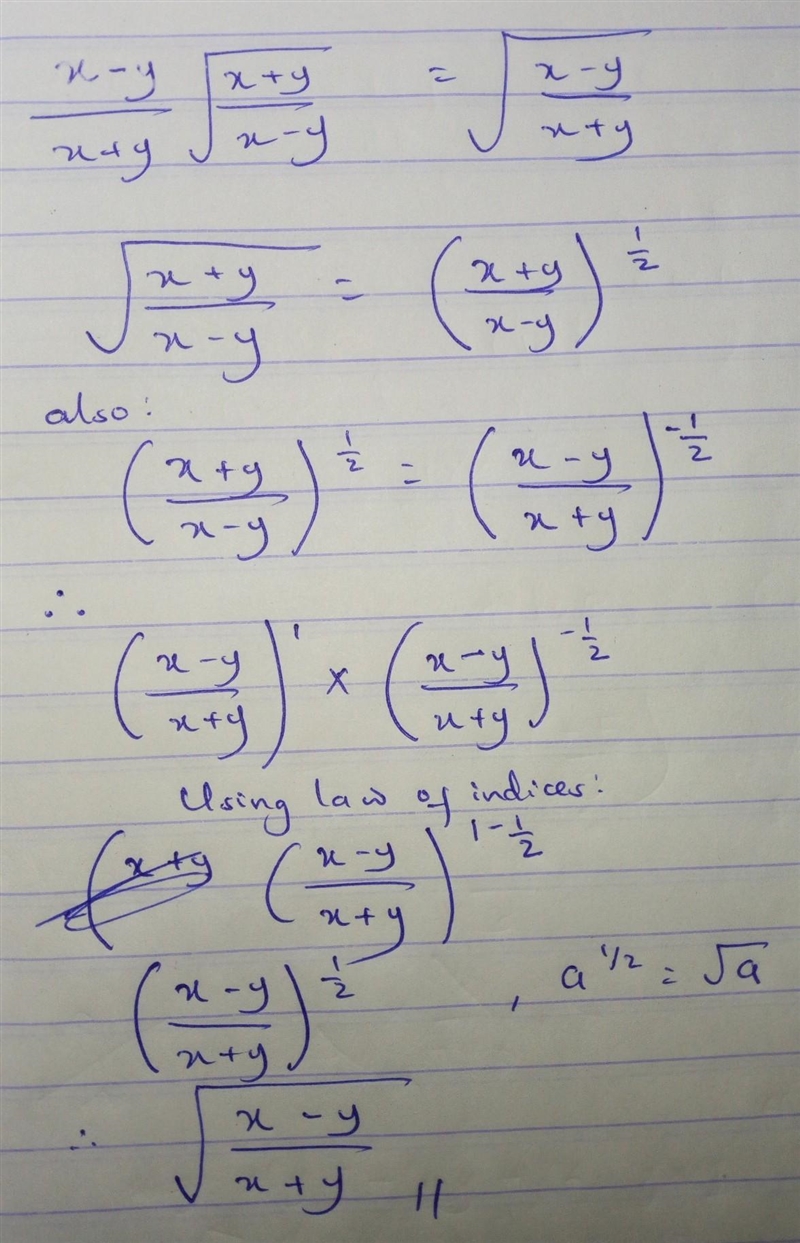 x-y/x+y √(x+y/x-y) = √(x-y/x+y)
√(x+y/x-y) = (x+y/x-y)^1/2
also:
(x+y/x-y)^1/2 = (x-y/x+y)^-1/2
∴
(x-y/x+y)^1 × (x-y/x+y)^-1/2
Using law of indices:
(x+y (x-y/x+y)^1-1/2
(x-y/x+y)^1/2 , a^1/2 = √a
∴ √(x-y/x+y) //